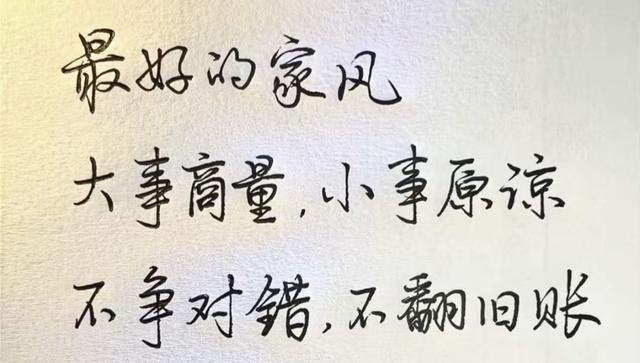 最好的家风
大事商量,小事原谅
不争对错,不翻旧账